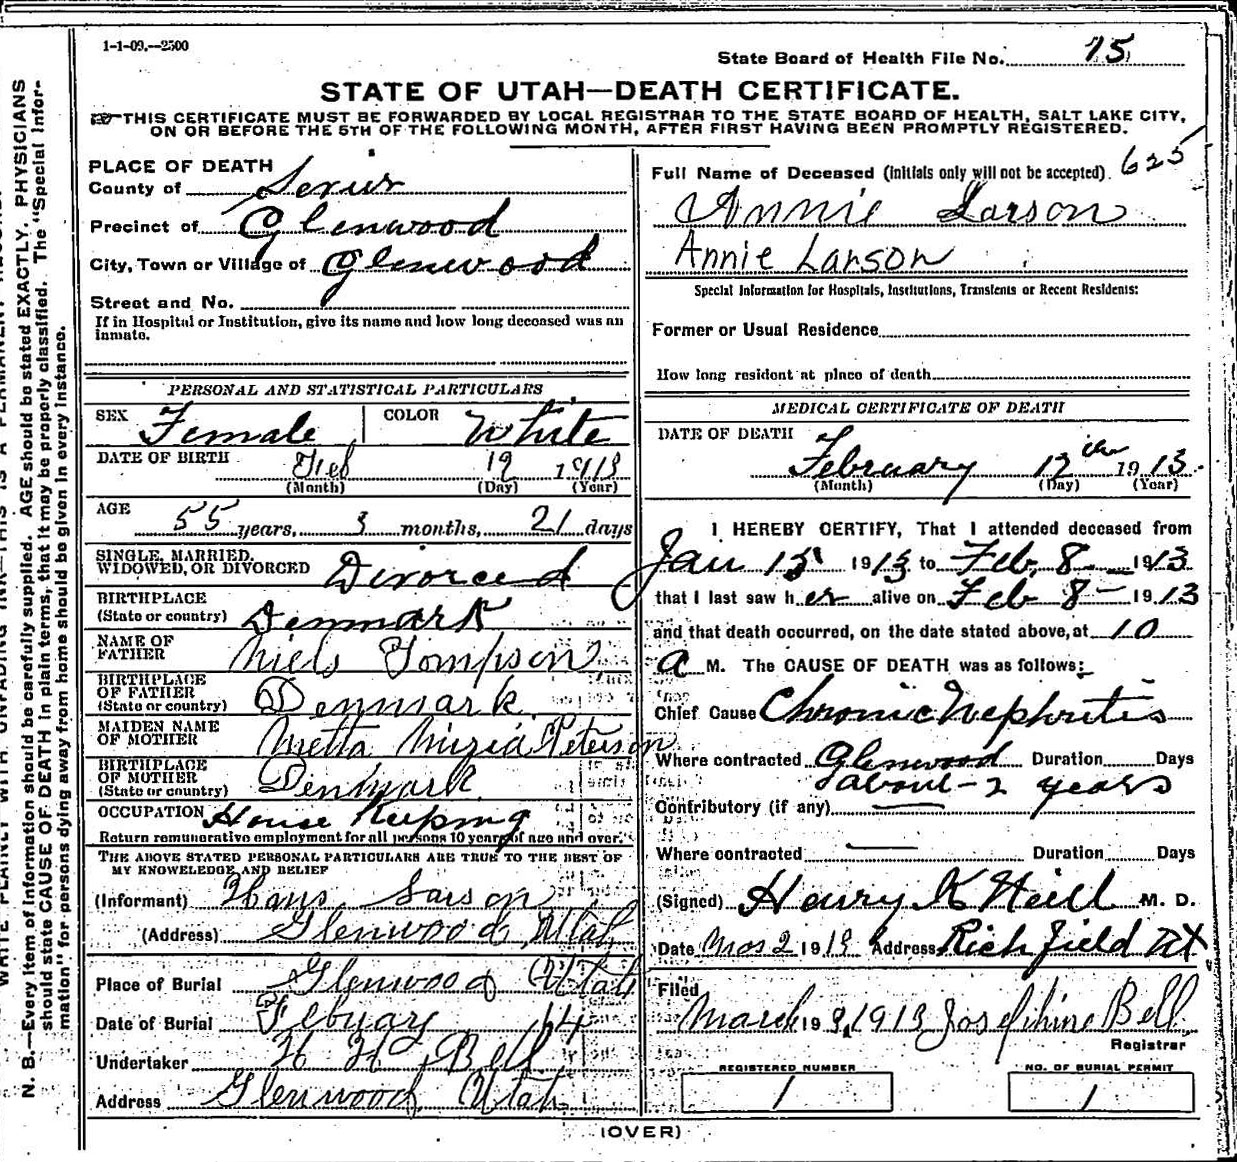 1-1-09.--2500
State Board of Health File No. 75
STATE OF UTAH—DEATH CERTIFICATE.
THIS CERTIFICATE MUST BE FORWARDED BY LOCAL REGISTRAR TO THE STATE BOARD OF HEALTH, SALT LAKE CITY,
ON OR BEFORE THE 5TH OF THE FOLLOWING MONTH, AFTER FIRST HAVING BEEN PROMPTLY REGISTERED.
N. B.—Every item of information should be carefully supplied. AGE should be stated EXACTLY. PHYSICIANS
should state CAUSE OF DEATH in plain terms, that it may be properly classified. The "Special Infor-
mation" for persons dying away from home should be given in every instance.
PLACE OF DEATH
County of Sevier
Precinct of Glenwood
City, Town or Village of Glenwood
Street and No.
If in Hospital or Institution, give its name and how long deceased was an
inmate.
PERSONAL AND STATISTICAL PARTICULARS
SEX Female COLOR White
DATE OF BIRTH Feb 19 1913
(Month) (Day) (Year)
AGE 55 years, 3 months, 21 days
SINGLE, MARRIED,
WIDOWED, OR DIVORCED Divorced
BIRTHPLACE
(State or country) Denmark
NAME OF
FATHER Niels Tompson
BIRTHPLACE
OF FATHER
(State or country) Denmark
MAIDEN NAME
OF MOTHER Metta Peterson
BIRTHPLACE
OF MOTHER
(State or country) Denmark
OCCUPATION House Keeping
Return remunerative employment for all persons 10 years of age and over.
THE ABOVE STATED PERSONAL PARTICULARS ARE TRUE TO THE BEST OF
MY KNOWELEDGE AND BELIEF
(Informant) Hans Larson
(Address) Glenwood Utah
Place of Burial Glenwood Utah
Date of Burial Febuary 14
Undertaker H H Bell
Address Glenwood Utah
Full Name of Deceased (Initials only will not be accepted). 625
Annie Larson
Annie Larson
Special Information for Hospitals, Institutions, Transients or Recent Residents:
Former or Usual Residence
How long resident at place of death
MEDICAL CERTIFICATE OF DEATH
DATE OF DEATH
February 12th 1913
(Month) (Day) (Year)
I HEREBY CERTIFY, That I attended deceased from
Jan 15 1913 to Feb. 8 1913
that I last saw her alive on Feb 8 — 1913
and that death occurred, on the date stated above, at 10
a M. The CAUSE OF DEATH was as follows:
Chief Cause Chronic Nephritis
Where contracted Glenwood Duration Days
about - 2 years
Contributory (if any) —
Where contracted — Duration Days
(Signed) Henry K Neill M. D.
Date 1913 Address Richfield
Filed
March 1913 Josephine Bell
Registrar
REGISTERED NUMBER
1
NO. OF BURIAL PERMIT
1
(OVER)